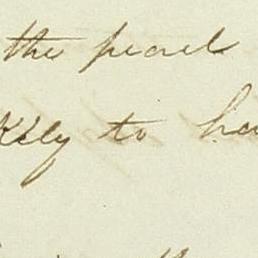 the pearl
kely to ha